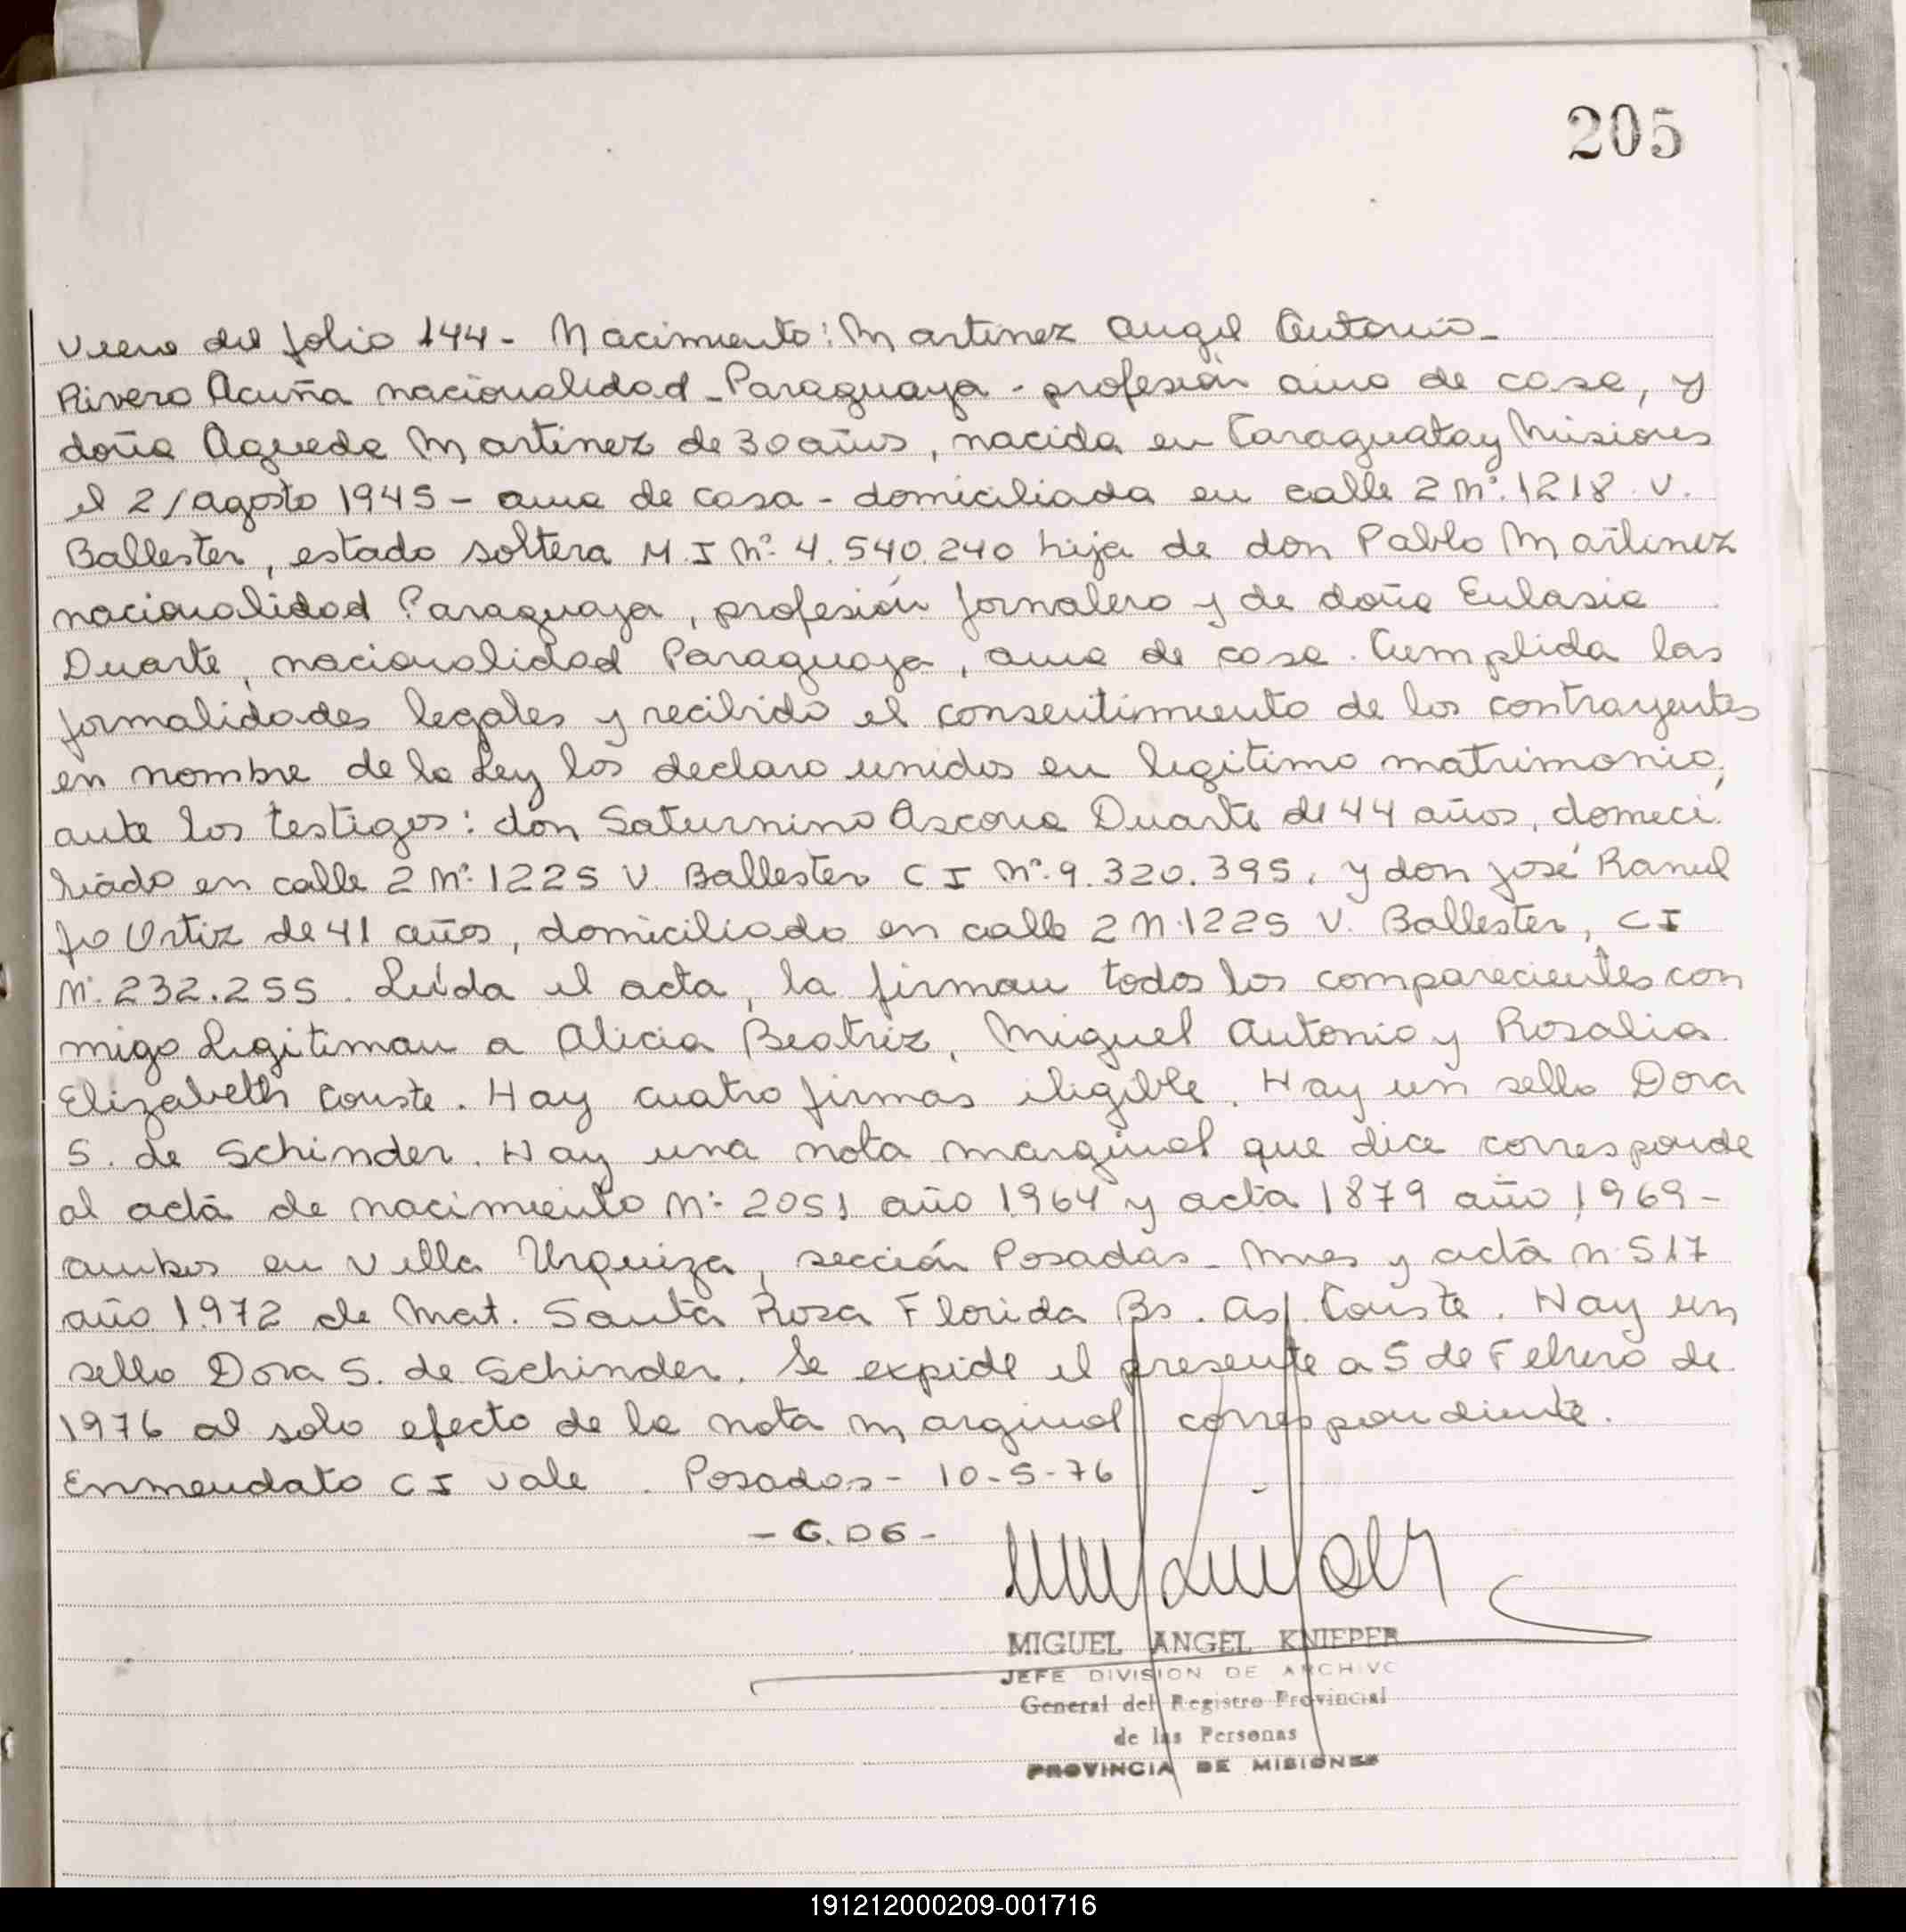 205
Viene del folio 144 - Nacimiento: Martinez Angel Antonio -
Rivero Acuña nacionalidad - Paraguaya - profesión ama de casa, y
doña Agueda Martinez de 30 años, nacida en Caraguatay Misiones
el 2/agosto 1945 - ama de casa - domiciliada en calle 2 Nº. 1218. V.
Ballester, estado soltera M.I Nº 4.540.240 hija de don Pablo Martinez
nacionalidad Paraguaya, profesión jornalero y de doña Eulasia
Duarte, nacionalidad Paraguaya, ama de casa. Cumplida las
formalidades legales y recibido el consentimiento de los contrayentes
en nombre de la Ley los declaro unidos en legitimo matrimonio,
ante los testigos: don Saturnino Ascona Duarte de 44 años, domici
liado en calle 2 Nº. 1225 V. Ballester C I Nº. 9.320.395. y don José Ranul
fo Ortiz de 41 años, domiciliado en calle 2 N. 1225 V. Ballester, C I
Nº. 232.255. Leída el acta, la firman todos los comparecientes con
migo Legitiman a Alicia Beatriz, Miguel Antonio y Rosalia
Elizabeth Conste. Hay cuatro firmas iligible. Hay un sello Dora
S. de Schinder. Hay una nota marginal que dice corresponde
al acta de nacimiento Nº 2051 año 1964 y acta 1879 año 1969 -
ambos en Villa Urquiza, sección Posadas - Mnes y acta N. 517
año 1.972 de Mat. Santa Rosa Florida Bs. As. Conste. Hay un
sello Dora S. de Schinder. Se expide el presente a 5 de Febrero de
1976 al solo efecto de la nota marginal correspondiente.
Enmendato C I vale. Posadas - 10-5-76
- G. D G -
MIGUEL ANGEL KNIEPER
JEFE DIVISION DE ARCHIVO
General del Registro Provincial
de las Personas
PROVINCIA DE MISIONES
191212000209-001716